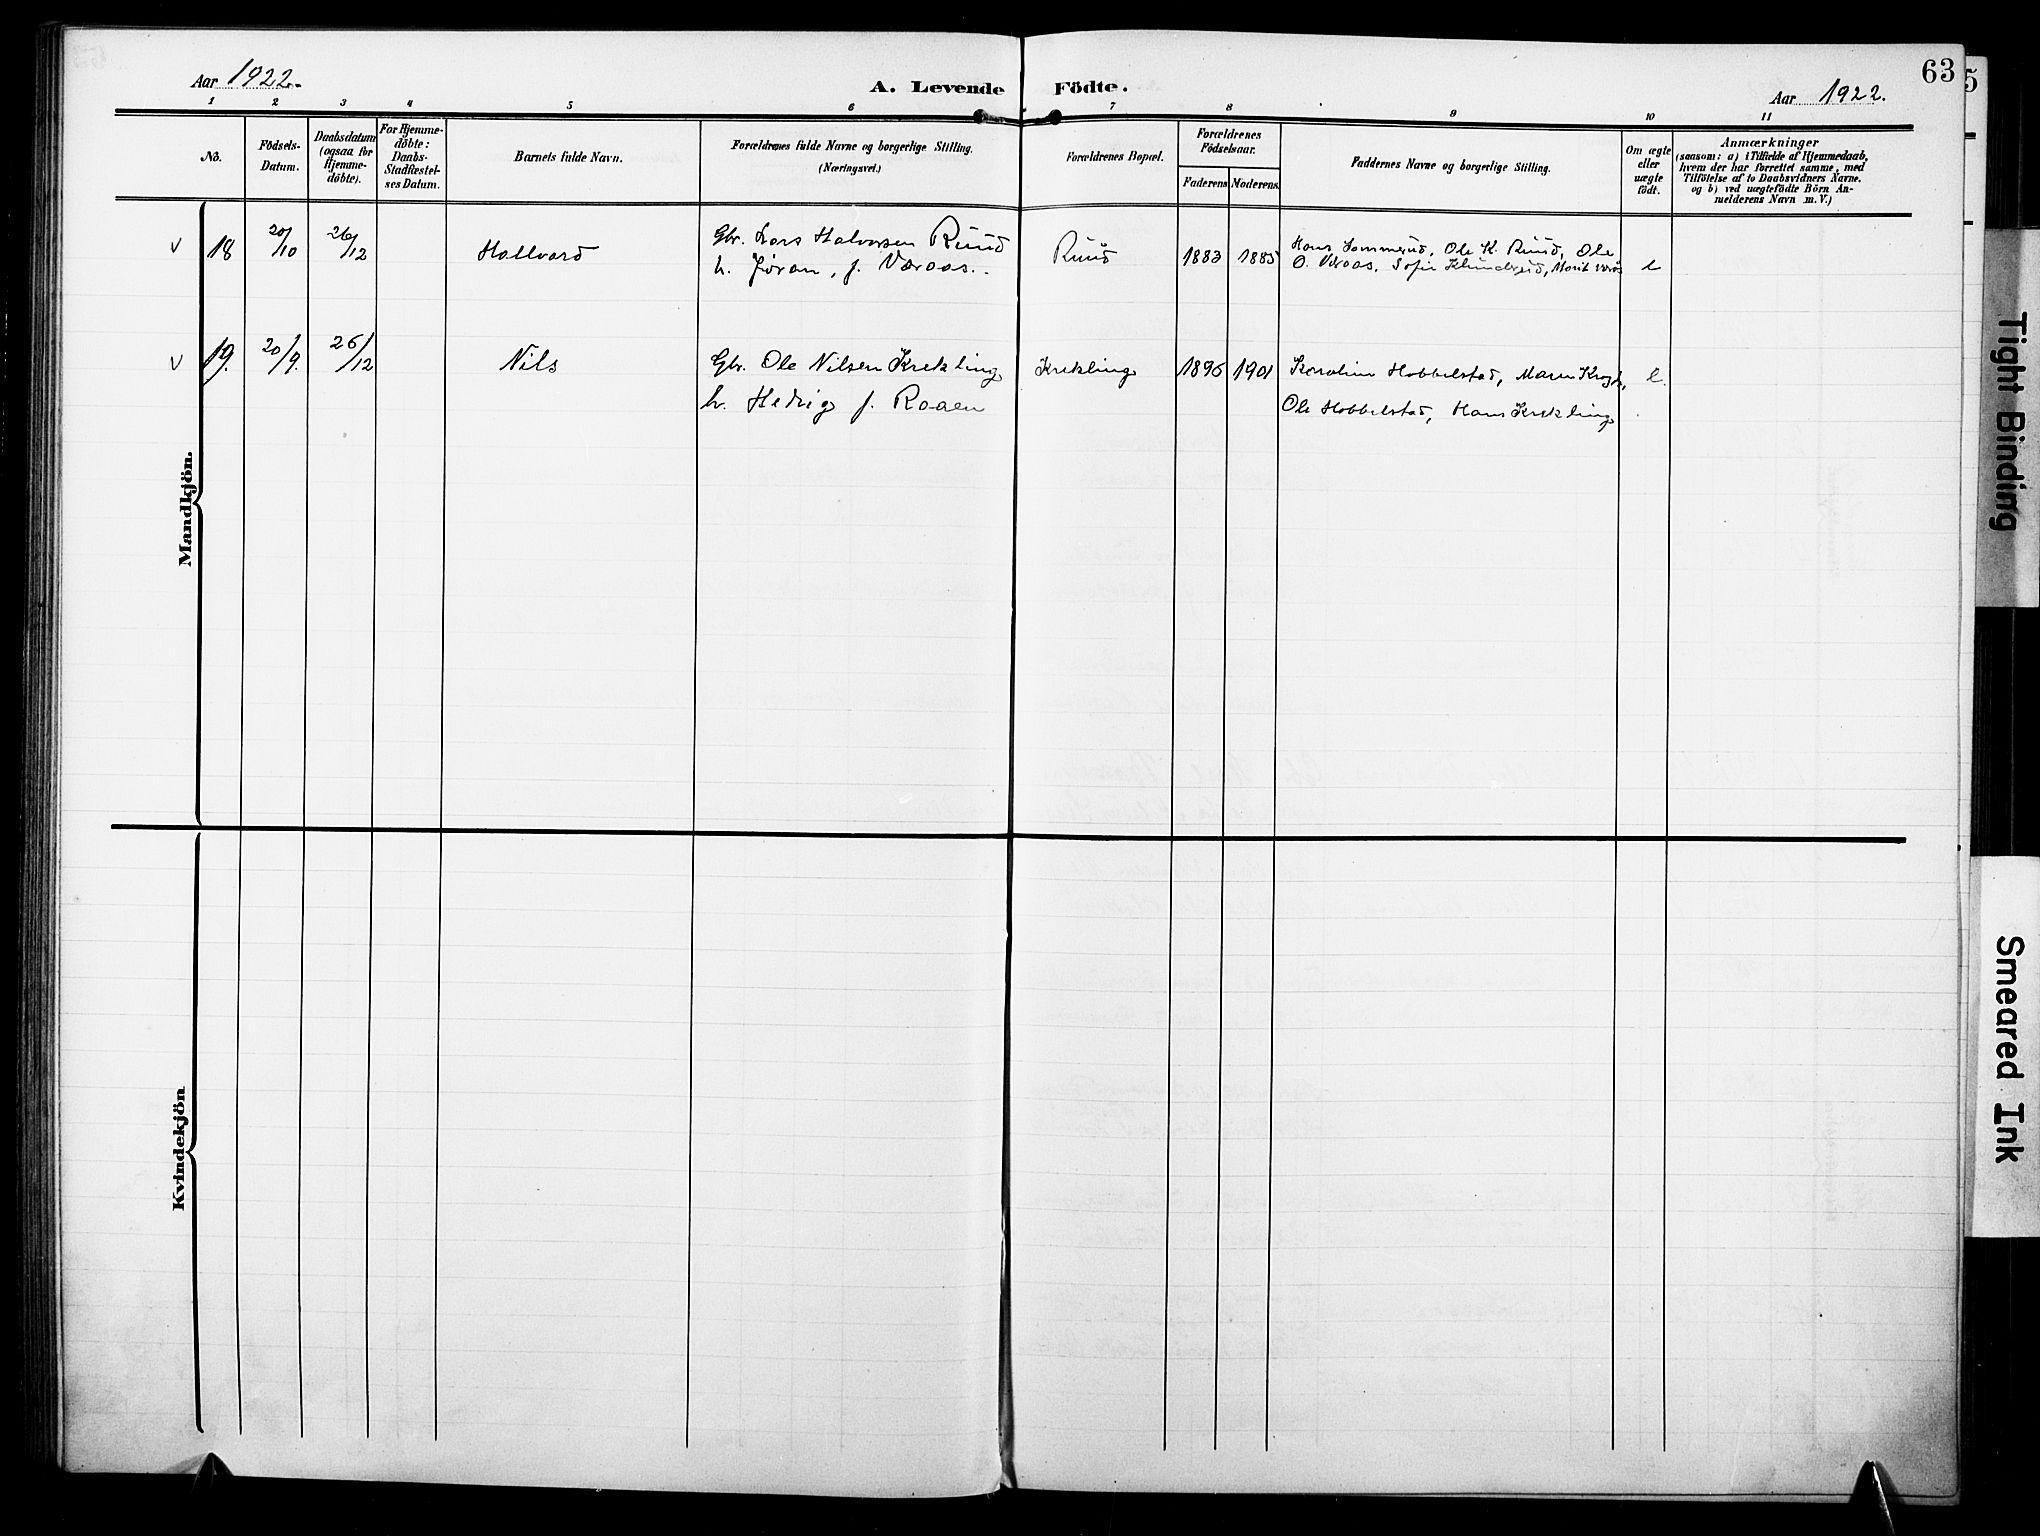 63
5
Aar 1922.-
A. Levende Födte.
Aar 1922.
1 2 3 4 5 6 7 8 9 10 11
No.
Födsels-
Datum.
Daabsdatum
(ogsaa for
Hjemme-
döbte).
For Hjemme-
döbte:
Daabs-
Stadfæstel-
ses Datum.
Barnets fulde Navn.
Forældrenes fulde Navne og borgerlige Stilling.
(Næringsvei.)
Forældrenes Bopæl.
Forældrenes
Födselsaar.
Faderens Moderens.
Faddernes Navne og borgerlige Stilling.
Om ægte
eller
uægte
födt.
Anmærkninger
(saasom: a) i Tilfælde af Hjemmedaab,
hvem der har forrettet samme, med
Tilföielse af to Daabsvidners Navne.
og b) ved uægtefödte Börn An-
melderens Navn m. V.)
Mandkjön.
v 18 20/10 26/12 Hallvard Gbr. Lars Halvorsen Ruud Ruud 1883 1885 Hans Sommerud, Ole K. Ruud, Ole e
h. Jøran, f. Væraas.. O. Væraas, Sofie Marit
v 19. 20/9. 26/12 Nils Gbr. Ole Nilsen Krekling Krekling 1896 1901 Karoline Hobbelstad, Maren e.
h. Hedvig f. Raaen Ole Hobbelstad, Hans Krekling
Kvindekjön
Tight Binding
Smeared Ink